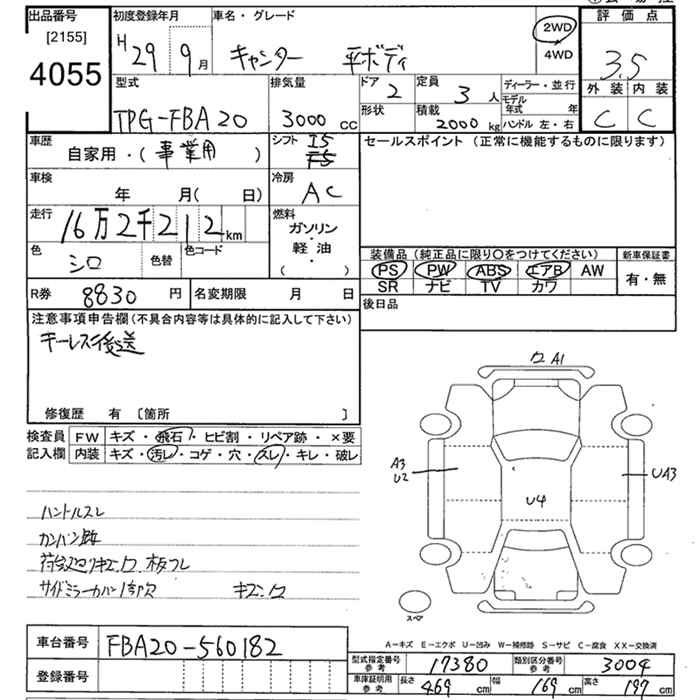 出品番号 初度登録年月 車名・グレード 2WD 4WD 評価点
[2155]
4055
H 29 9月 キャンター 平ボディ 3.5
型式 排気量 ドア 定員 ディーラー・並行 外装 内装
TPG-FBA20 3000cc 2 3人 モデル年式 年
形状 積載 2000kg ハンドル 左・右 C C
車歴 自家用・(事業用) シフト I5 F5 セールスポイント (正常に機能するものに限ります)
車検 年 月(日) 冷房 AC
走行 16万2千212km 燃料 ガソリン・軽油・( )
色 シロ 色替 色コード
装備品 (純正品に限り○をつけてください) 新車保証書
PS PW ABS エアB AW 有・無
SR ナビ TV カワ
R券 8830円 名変期限 月 日 後日品
注意事項申告欄 (不具合内容等は具体的に記入して下さい)
キーレス後送
修復歴 有 [箇所 ]
検査員記入欄 FW キズ・飛石・ヒビ割・リペア跡・×要
内装 キズ・汚レ・コゲ・穴・スレ・キレ・破レ
ワ A1
A3
U2
U4
UA3
スペア
ハンドルスレ
サイドミラーカバー
A-キズ E-エクボ U-凹み W-補修跡 S-サビ C-腐食 XX-交換済
車台番号 FBA20-560182
登録番号
型式指定番号参考 17380 類別区分番号参考 3004
車庫証明用参考 長さ 469cm 幅 169cm 高さ 197cm